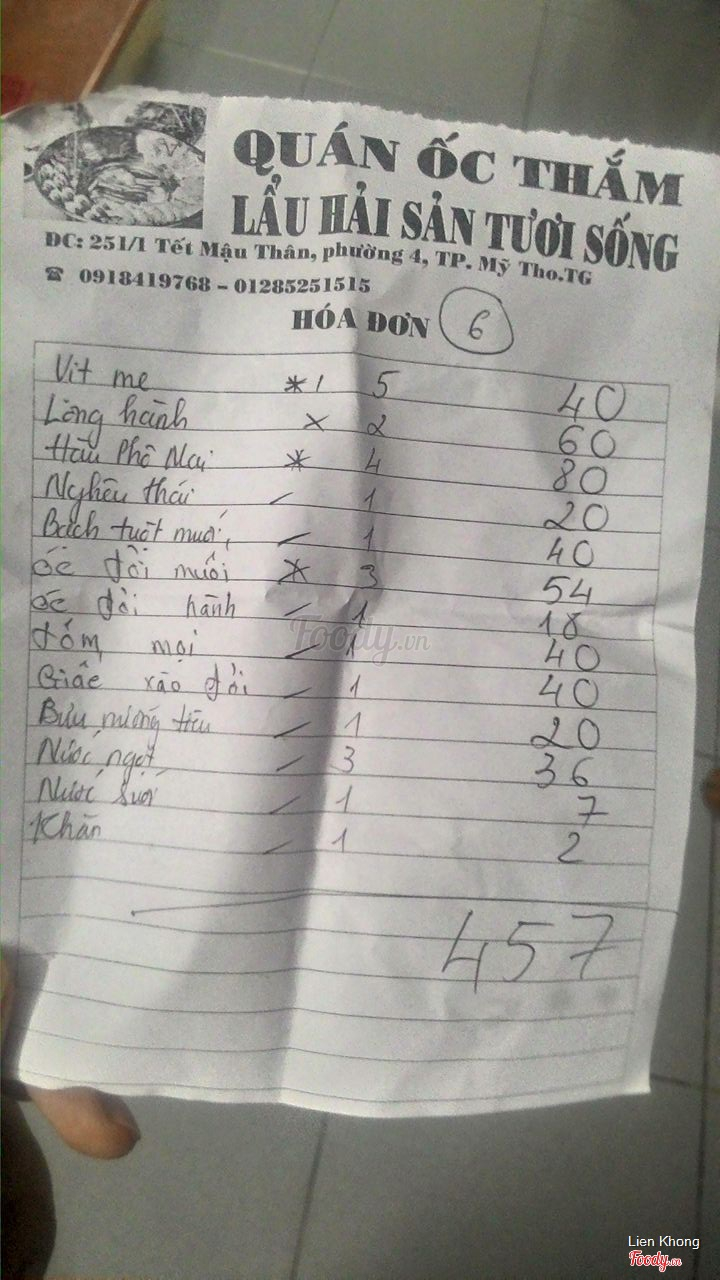 QUÁN ỐC THẮM
LẨU HẢI SẢN TƯƠI SỐNG
ĐC: 251/1 Tết Mậu Thân, phường 4, TP. Mỹ Tho.TG
☎ 0918419768 - 01285251515
HÓA ĐƠN 6
Vit me * 1 5 40
Lòng hành x 2 60
Hàu Phô Mai * 4 80
Nghêu thái / 1 20
Bạch tuột muối / 1 40
ốc đồi muối * 3 54
ốc đồi hành / 1 18
mọi / 1 40
xào / 1 40
nướng tiêu / 1 20
Nước ngọt / 3 36
Nước suối / 1 7
Khăn / 1 2
457
Foody.vn
Lien Khong
Foody.vn